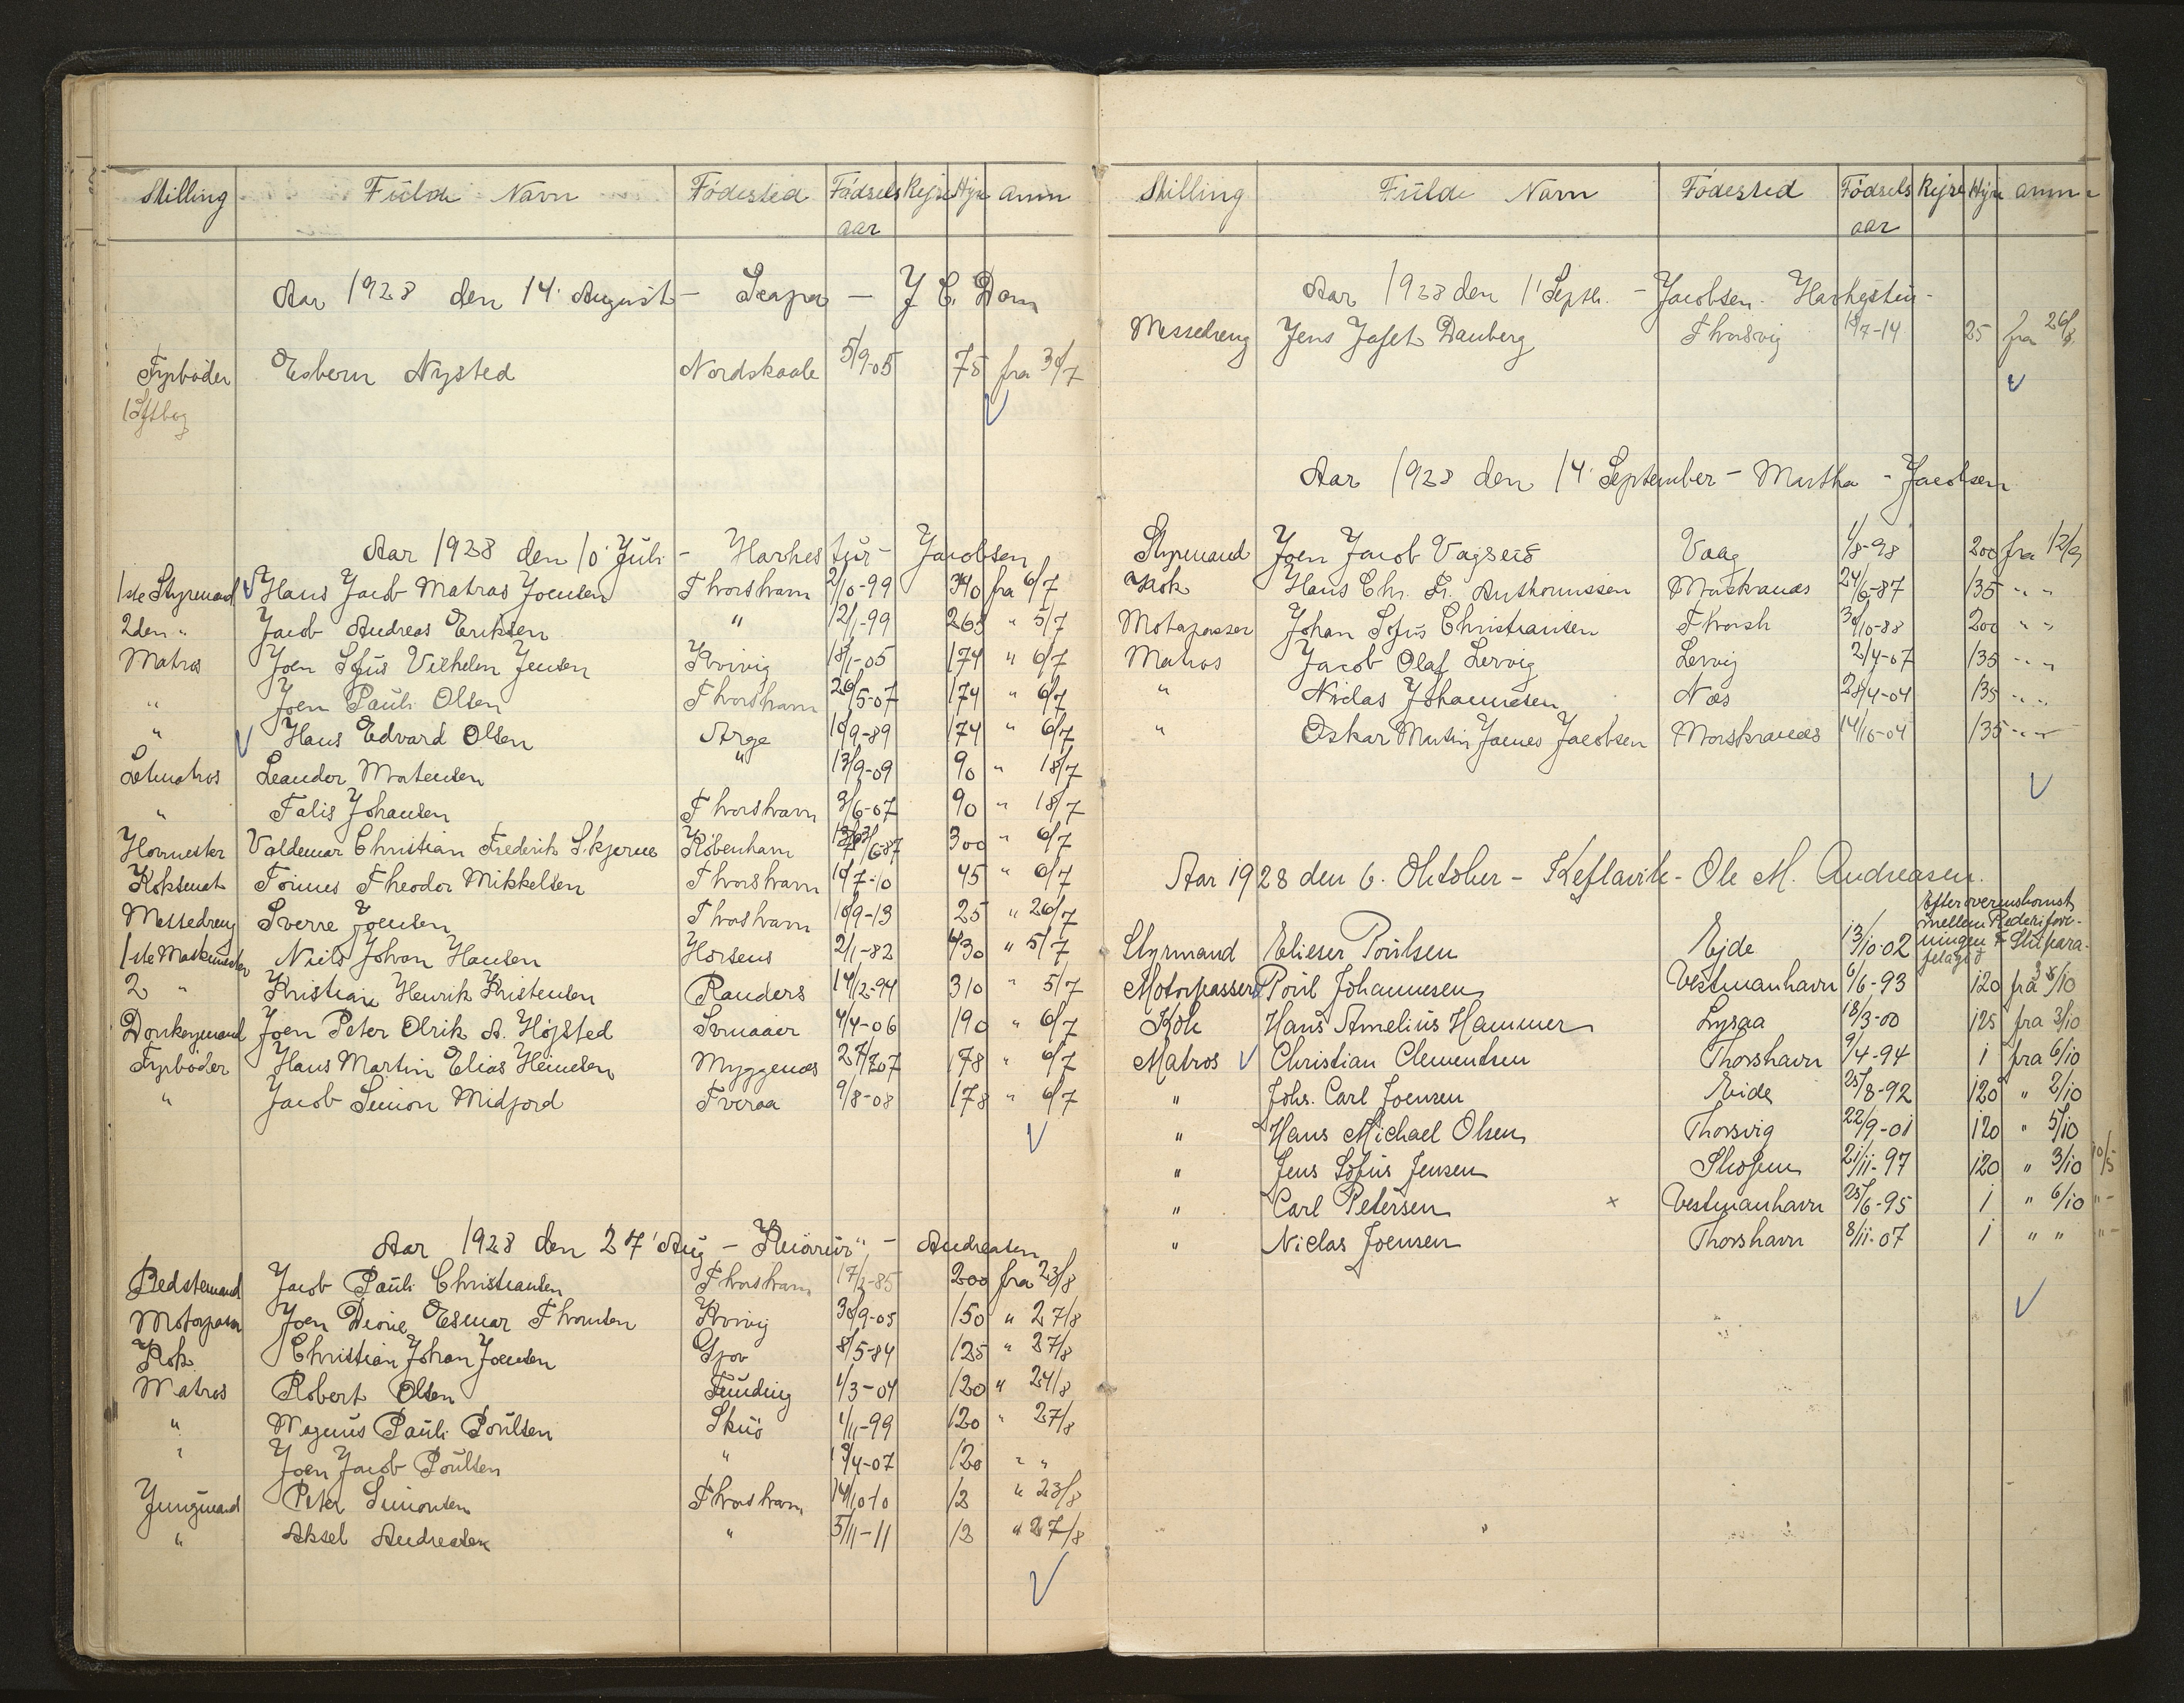 Stilling Fulde Navn Fødested Fødsels Rejse Hyre anm
aar
Aar 1928 den 14 August - Scapa - J C. Dam
Fyrbøder Esbern Nysted Nordskaale 5/9-05 75 fra 30/7
Aar 1928 den 10 Juli - Havhestur - Jacobsen
1ste Styrmand Hans Jacob Matras Joensen Thorshavn 2/10-99 340 fra 6/7
2den " Jacob Andreas Eriksen " 12/1-99 265 " 5/7
Matros Joen Sofus Vilhelm Jensen Kvivig 18/1-05 174 " 6/7
" Joen Pauli Olsen Thorshavn 26/5-07 174 " 6/7
" Hans Edvard Olsen Arge 10/9-89 174 " 6/7
Letmatros Leander Mortensen " 13/9-09 90 " 18/7
" Falis Johansen Thorshavn 3/6-07 90 " 18/7
Hovmester Valdemar Christian Frederik Skjerne København 300 " 6/7
Koksmat Toimes Theodor Mikkelsen Thorshavn 10/7-10 45 " 6/7
Messedreng Sverre Joensen Thorshavn 10/9-13 25 " 26/7
1ste Maskinmester Niels Johan Hansen Horsens 2/1-82 430 " 5/7
2 " Kristian Henrik Kristensen Randers 14/2-94 310 " 5/7
Donkeymand Joen Peter Olrik A. Højsted Srmaaer 4/4-06 190 " 6/7
Fyrbøder Hans Martin Elias Heinesen Myggenæs 27/7-07 178 " 6/7
" Jacob Simon Midjord Tveraa 9/8-08 178 " 6/7
Aar 1928 den 27' Aug - - Andreasen
Bedstemand Jacob Pauli Christiansen Thorshavn 17/2-85 200 fra 23/8
Motorpasser Joen Deone Esmar Thomsen Kvivig 30/9-05 150 " 27/8
Kok Christian Johan Joensen Gjov 8/5-84 125 " 27/8
Matros Robert Olsen Funding 1/3-04 120 " 24/8
" Magnus Pauli Poulsen Skuø 1/11-99 120 " 27/8
" Joen Jacob Poulsen " 19/4-07 120 " "
Jungmand Peter Simonsen Thorshavn 14/10-10 12 " 23/8
" Aksel Andreasen " 5/11-11 12 " 27/8
Stilling Fulde Navn Fødested Fødsels Rejse Hyre anm
aar
Aar 1928 den 1' Septr. - Jacobsen - Havhestur -
Messedreng Jens Jafet Dauberg Thorsvig 19/7-14 25 fra 26/8
Aar 1928 den 14' September - Martha - Jacobsen
Styrmand Joen Jacob Vagseið Vaag 1/8-98 200 fra 12/9
Kok Hans Chr. Fr. Anthoniussen Morskranes 24/6-87 135 " "
Motorpasser Johan Sofus Christiansen Thorsh 30/10-88 200 " "
Matros Jacob Olaf Lervig Lervig 2/4-07 135 " "
" Niclas Johannesen Næs 28/4-04 135 " "
" Oskar Martin James Jacobsen Morskranes 14/10-04 135 " "
Aar 1928 den 6. Oktober - Keflavik - Ole M. Andreasen.
Efter overenskomst
mellem Rederifore-
ningen & Skipara-
felagið
Styrmand Elieser Poulsen Ejde 13/10-02
Motorpasser Poul Johannesen Vestmanhavn 6/6-93 120 fra 3/10
Kok Hans Amelius Hammer Lysaa 18/3-00 125 fra 3/10
Matros Christian Clementsen Thorshavn 9/4-94 1 fra 6/10
" Johs. Carl Joensen Eide 25/8-92 120 " 2/10
" Hans Michael Olsen Thorsvig 22/9-01 120 " 5/10
" Jens Sofus Jensen Skofum 21/11-97 120 " 3/10 10/5
" Carl Petersen x Vestmanhavn 25/6-95 1 " 6/10 " -
" Niclas Joensen Thorshavn 8/11-07 1 " " " -